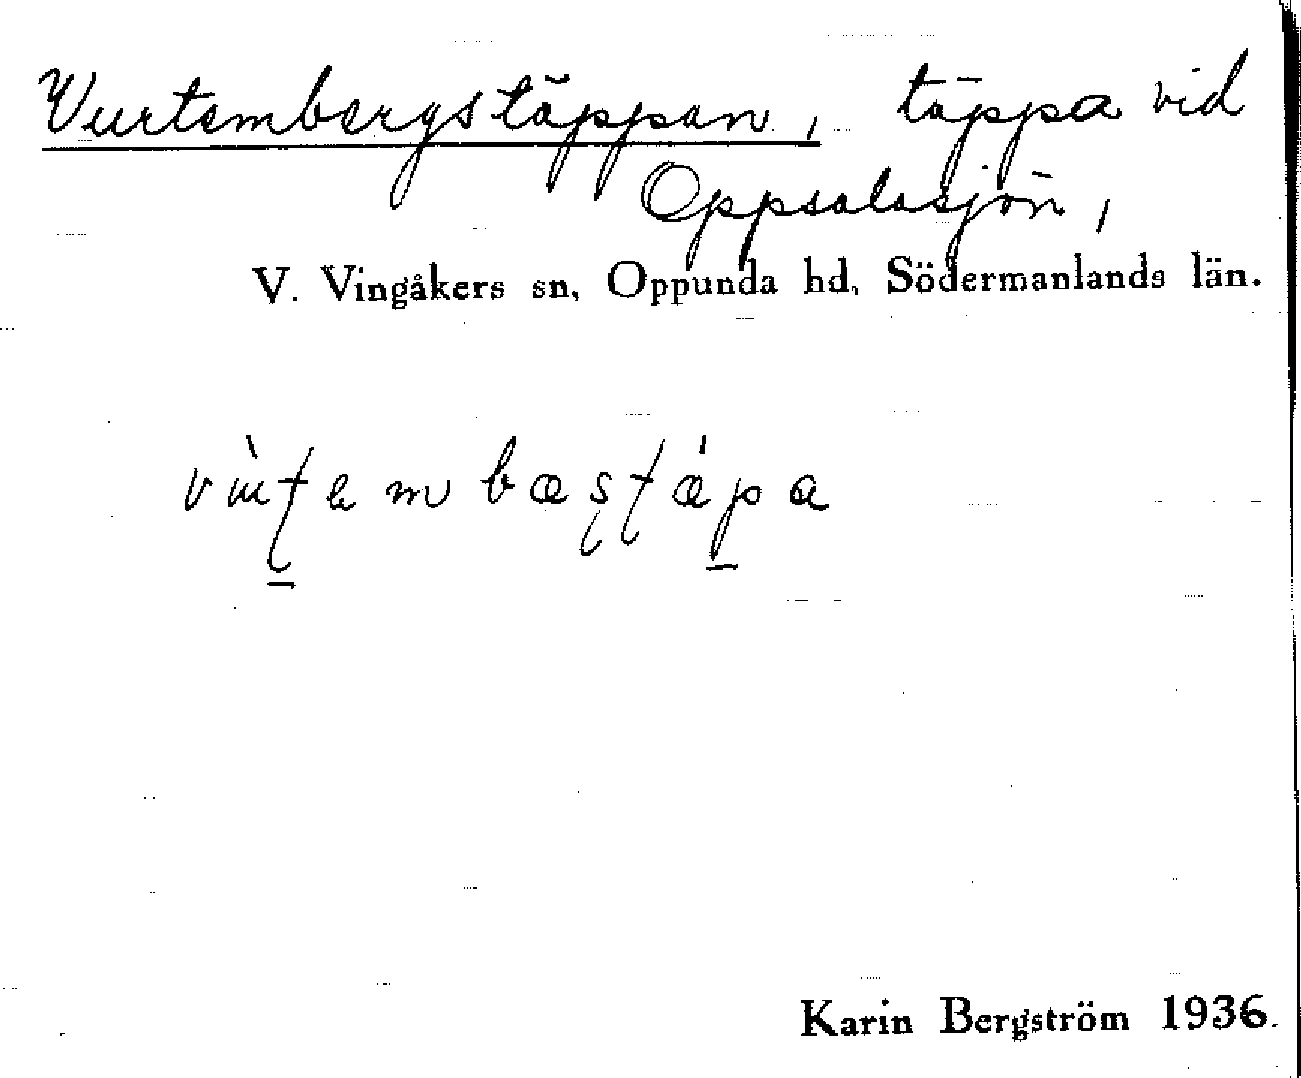 Vurtembergstäppan, täppa vid
Oppsalasjön,
V. Vingåkers sn, Oppunda hd, Södermanlands län.
Karin Bergström 1936.